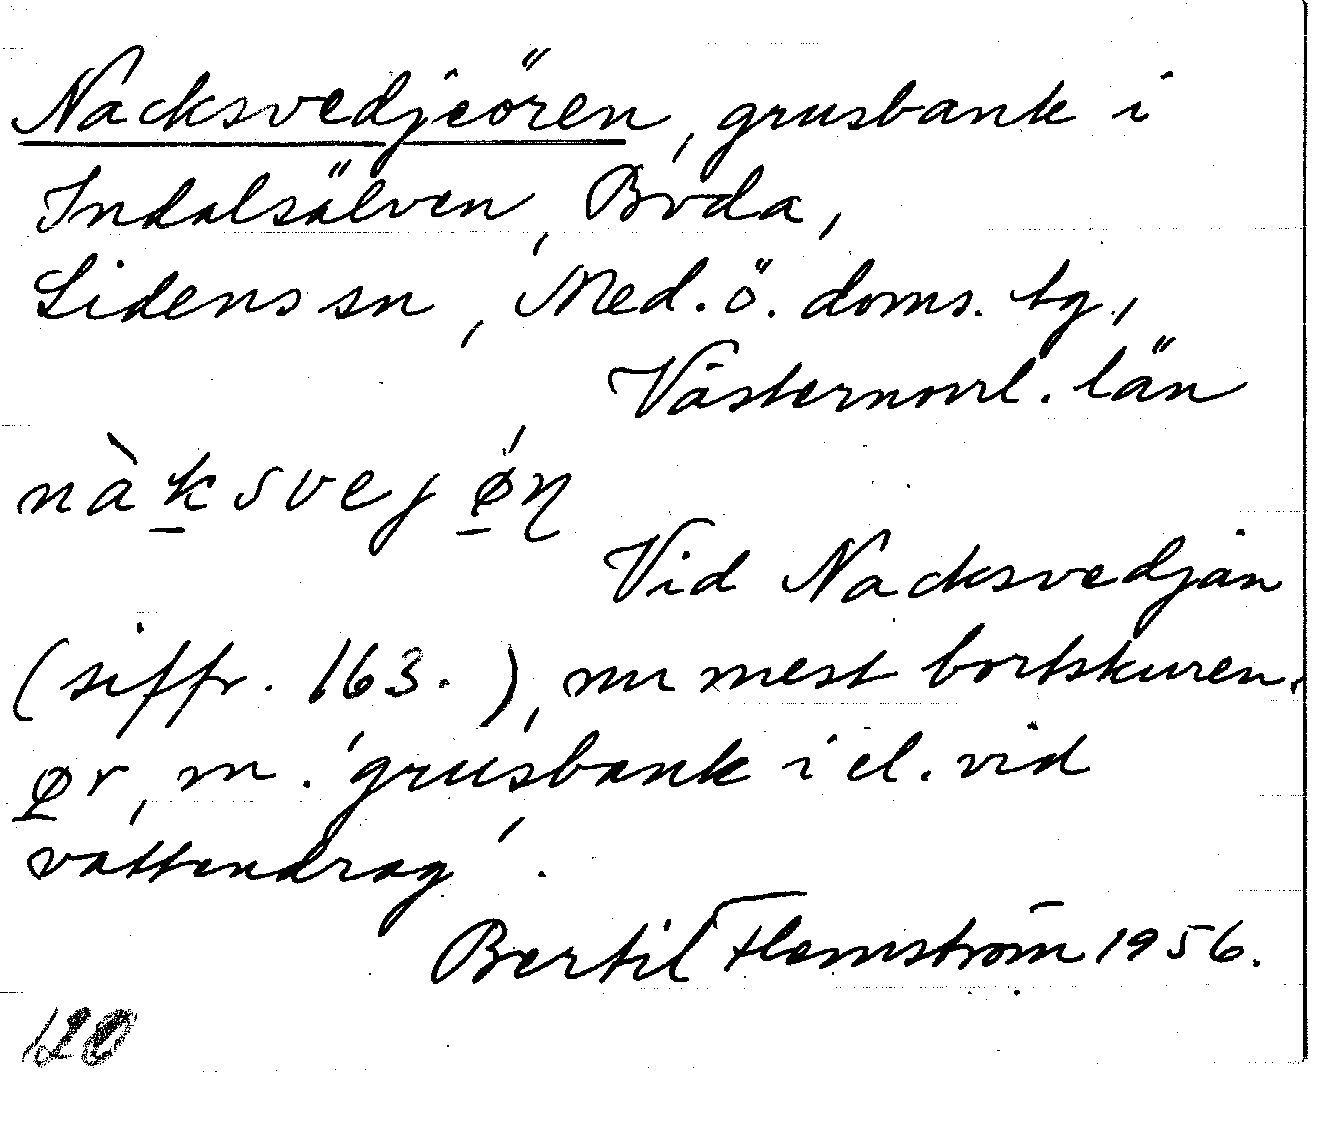 Nacksvedjeören, grusbank i
Indalsälven, Boda,
Lidens sn, Med. ö. doms. tg.,
Västernorrl. län
nàk̲svejǿ̲ɳ
Vid Nacksvedjan
(siffr. 163.), nu mest bortskuren.
ø̲r, m. 'grusbank i el. vid
vattendrag'.
Bertil Flemström 1956.
120